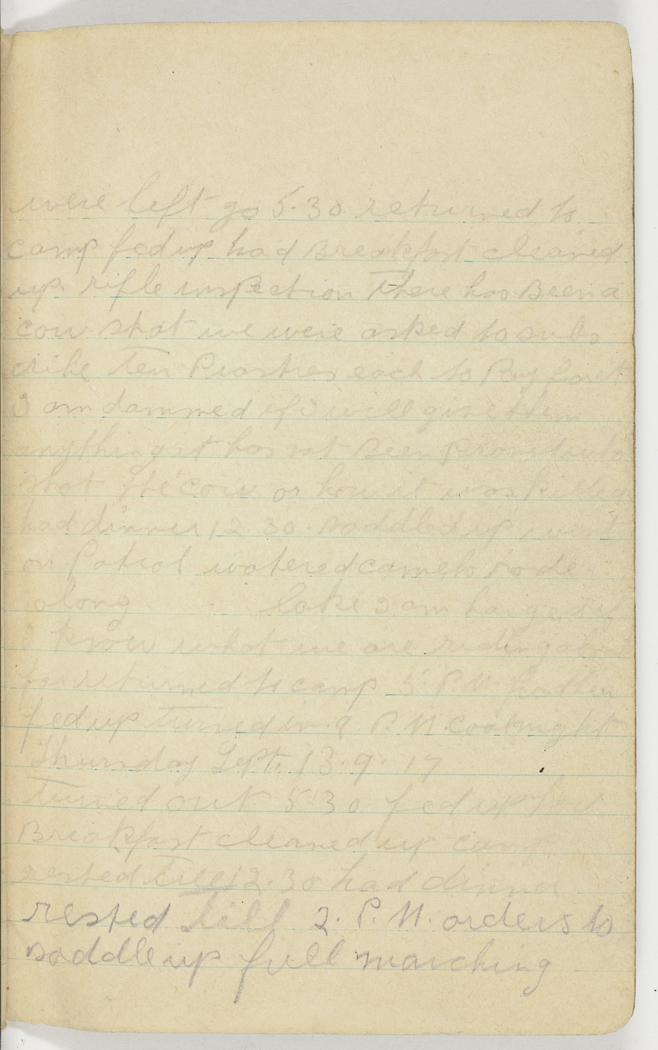 were left go 5.30 returned to
camp fed up had Breakfast cleaned
up rifle inspection There has Been a
cow shot we were asked to subs
cribe Ten Piastres each to Pay for it
I am dammed if I will give them
anything it has not Been proved who
shot the cow or how it was killed
had dinner 12.30. saddled up went
on Patrol watered camels rode
along lake I am hanged if
I know what we are riding about
for returned to camp 5 P.M.
fed up turned in 9 P.M. Cool night
Thursday Sept. 13.9.17
turned out 5.30 fed up had
Breakfast cleaned up camp
rested till 12.30 had dinner
rested till 2. P.M. orders to
saddle up full marching